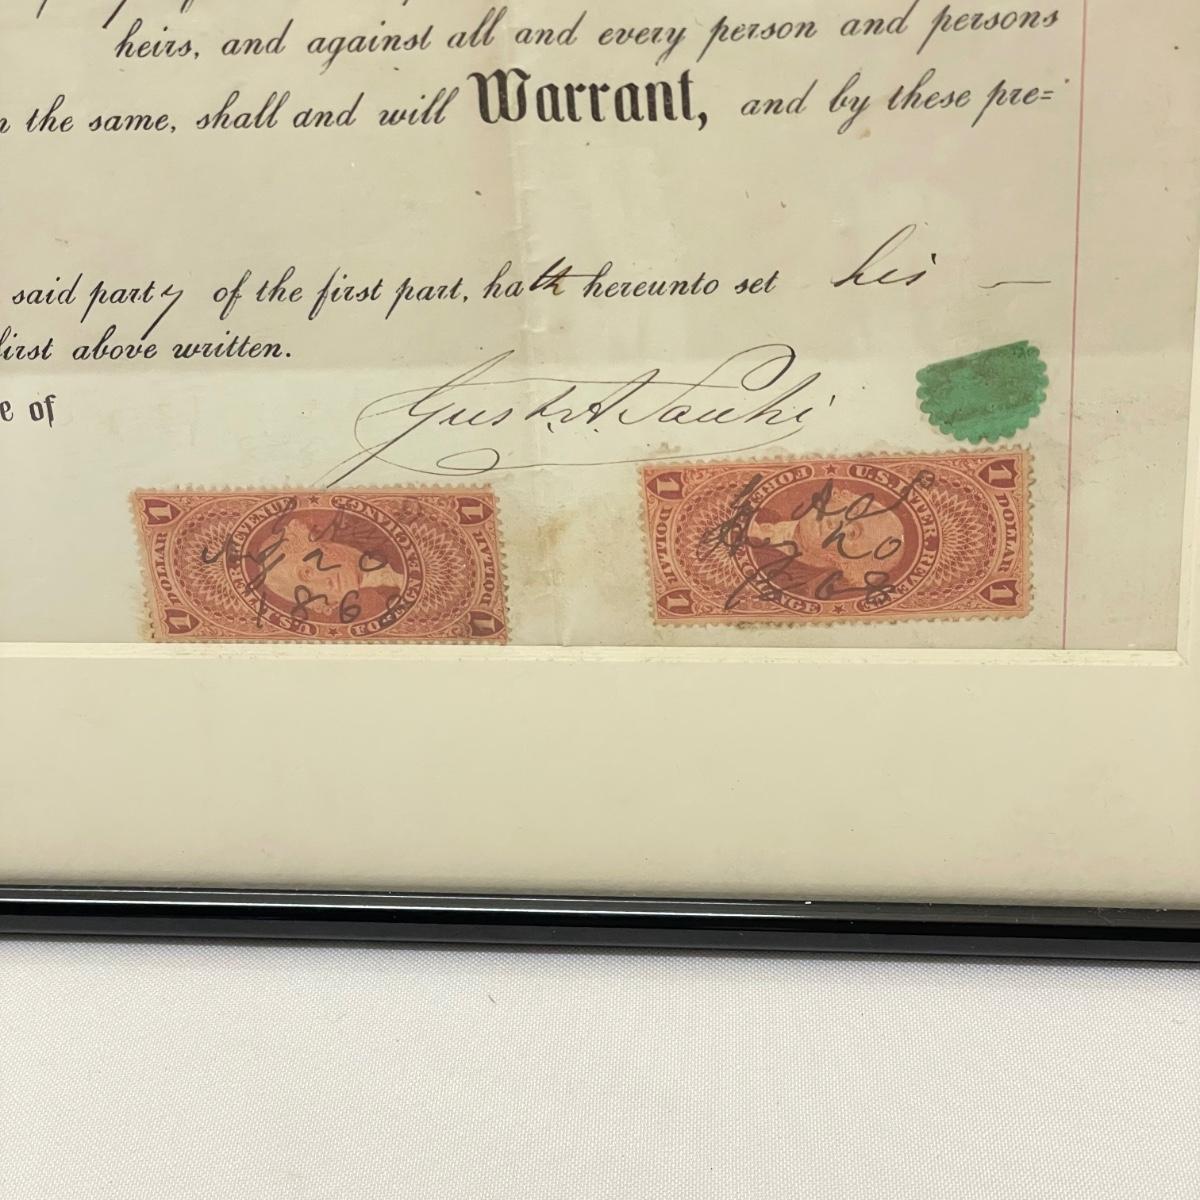 heirs, and against all and every person and persons
the same, shall and will Warrant, and by these pre=
said party of the first part, hath hereunto set his —
first above written.
e of
1 1 1 1
DOLLAR DOLLAR
U.S. INTER. REVENUE
FOREIGN EXCHANGE
Aug 20
1868
1 1 1 1
DOLLAR DOLLAR
U.S. INTER. REVENUE
FOREIGN EXCHANGE
Aug 20
1868